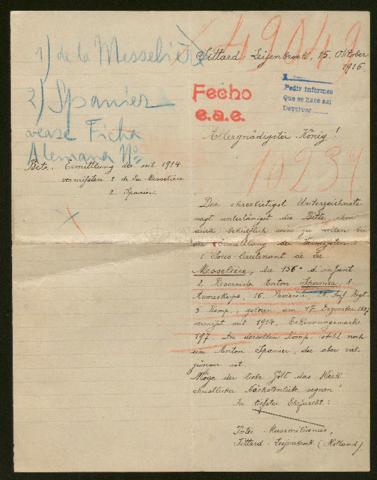 1) de la Messelière
2) Spanier
vease Ficha
Alemana Nº
49049
Sittard Leijenbroek, 15. Oktober
1916
Fecho
e.a.e.
Pedir informes
Que se hace así
Allergnädigster König!
10239
Bitte, Ermittlung der seit 1914
vermißten 1. de la Messelière
2. Spanier.
Der ehrerbietigst Unterzeichnete
wagt untertänigst die Bitte,
zu wollen bei
der Ermittlung der Vermißten:
1. Sous-lieutenant de la
Messelière, du 136e d'infant.
2. Reservist Anton Spanier, 8.
Armeekorps, 16. Inf. Regt.
3. Komp., geboren am 17. Dezember
vermißt seit 1914, Erkennungsmarke
197. In derselben Komp. steht noch
ein Anton Spanier, der aber
ist.
Möge der liebe Gott das Werk
christlicher Nächstenliebe segnen!
In tiefster Ehrfurcht:
Sittard-Leijenbroek (Holland)